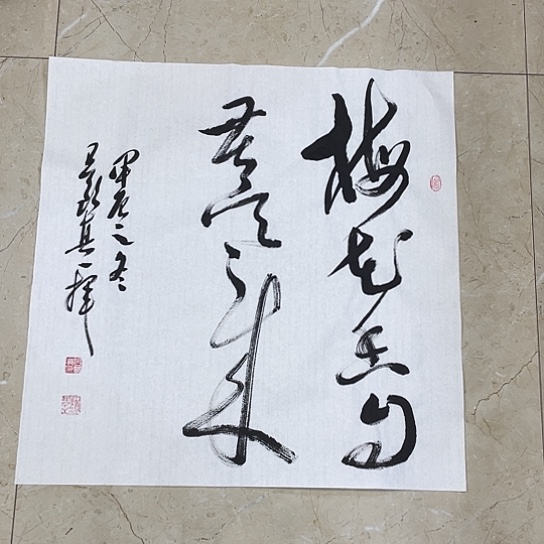 梅花香自
苦寒来
甲辰之冬